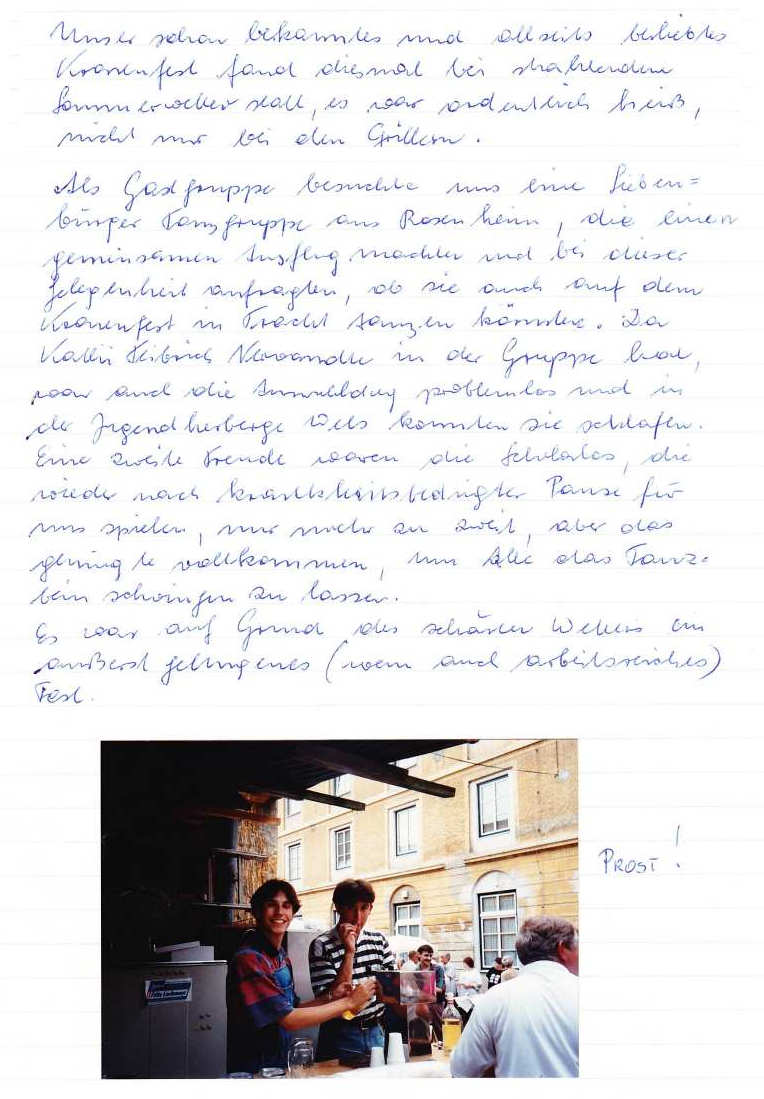 Unser schon bekanntes und allseits beliebtes
Kranenfest fand diesmal bei strahlendem
Sommerwetter statt, es war ordentlich heiß,
nicht nur bei den Grillern.
Als Gastgruppe besuchte uns eine Sieben=
bürger Tanzgruppe aus Rosenheim, die einen
gemeinsamen Ausflug machten und bei dieser
Gelegenheit anfragten, ob sie auch auf dem
Kranenfest in Tracht tanzen könnten. Da
Kathi Verwandte in der Gruppe hat,
war auch die Anmeldung problemlos und in
der Jugendherberge Wels konnten sie schlafen.
Eine zweite Freude waren die, die
wieder nach krankheitsbedingter Pause für
uns spielten, nur mehr zu zweit, aber das
genügte vollkommen, um Alle das Tanz-
bein schwingen zu lassen.
Es war auf Grund des schönen Wetters ein
äußerst gelungenes (wenn auch arbeitsreiches)
Fest.
PROST!